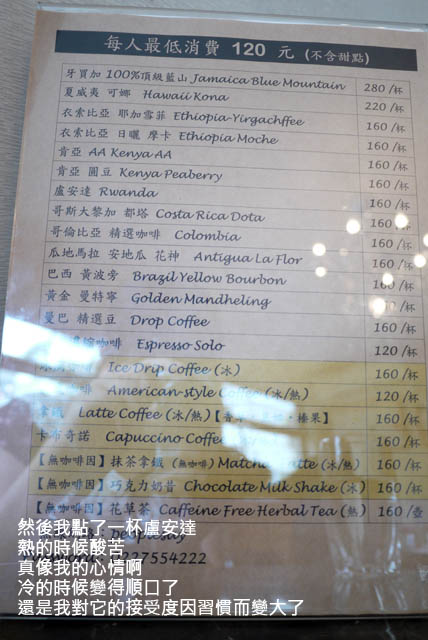 每人最低消費 120 元 (不含甜點)
牙買加 100%頂級藍山 Jamaica Blue Mountain 280 /杯
夏威夷 可娜 Hawaii Kona 220 /杯
衣索比亞 耶加雪菲 Ethiopia-Yirgachffee 160 /杯
衣索比亞 日曬 摩卡 Ethiopia Moche 160 /杯
肯亞 AA Kenya AA 160 /杯
肯亞 圓豆 Kenya Peaberry 160 /杯
盧安達 Rwanda 160 /杯
哥斯大黎加 都塔 Costa Rica Dota 160 /杯
哥倫比亞 精選咖啡 Colombia 160 /杯
瓜地馬拉 安地瓜 花神 Antigua La Flor 160 /杯
巴西 黃波旁 Brazil Yellow Bourbon 160 /杯
黃金 曼特寧 Golden Mandheling 160 /杯
曼巴 精選豆 Drop Coffee 160 /杯
咖啡 Espresso Solo 120 /杯
Ice Drip Coffee (冰) 160 /杯
咖啡 American-style Coffee (冰/熱) 120 /杯
拿鐵 Latte Coffee (冰/熱) 榛果】 160 /杯
卡布奇諾 Capuccino Coffee 160 /杯
【無咖啡因】抹茶拿鐵 (無咖啡) Matcha Latte (冰/熱) 160 /杯
【無咖啡因】巧克力奶昔 Chocolate Milk Shake (冰) 160 /杯
【無咖啡因】花草茶 Caffeine Free Herbal Tea (熱) 160 /壺
peoplesay
0227554222
然後我點了一杯盧安達
熱的時候酸苦
真像我的心情啊
冷的時候變得順口了
還是我對它的接受度因習慣而變大了